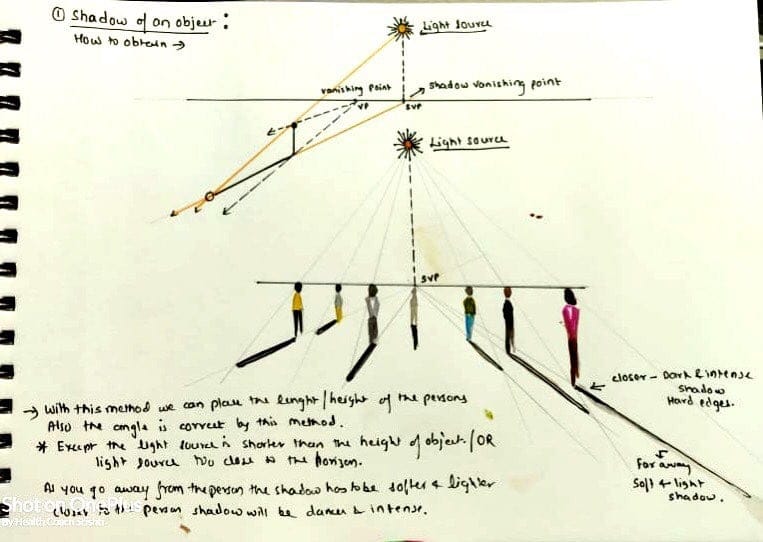 ① Shadow of an object :
How to obtain →
Light source
vanishing point
shadow vanishing point
VP
SVP
Light source
SVP
closer - Dark & intense
shadow
Hard edges.
→ With this method we can place the lenght/height of the persons
Also the angle is correct by this method.
* Except the light source is shorter than the height of object/OR
light source too close to the horizon.
Far away
Soft & light
shadow.
As you go away from the person the shadow has to be softer & lighter
closer to the person shadow will be darker & intense.
Shot on OnePlus
By Health Coach